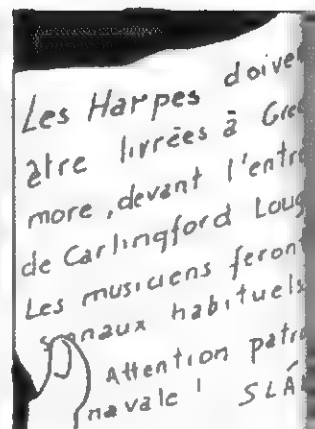 Les Harpes doive
être livrées à Gree
more, devant l'entr
de Carlingford Loug
Les musiciens feront
naux habituels
Attention patro
navale ! SLÁ